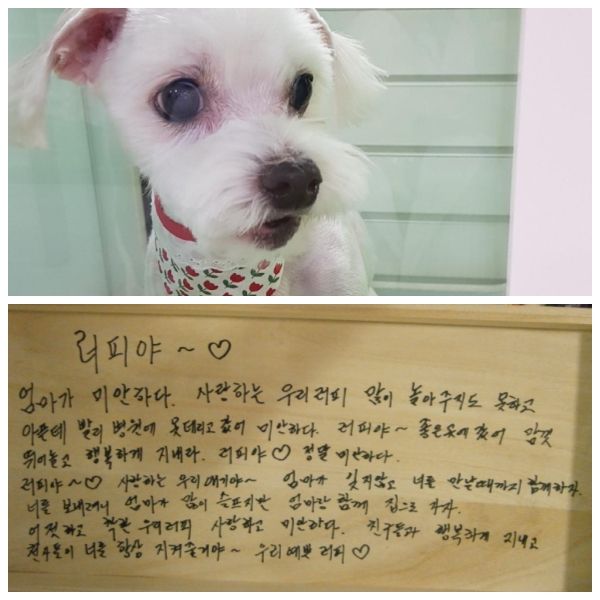 러피야 ~ ♡
엄마가 미안하다. 사랑하는 우리러피 많이 놀아주지도 못하고
아픈데 빨리 병원에 못데리고 갔어 미안하다. 러피야~ 좋은곳에 갔어 맘껏
뛰어놀고 행복하게 지내라. 러피야♡ 정말 미안하다.
러피야~♡ 사랑하는 우리애기야~ 엄마가 잊지않고 너를 만날때까지 함께하자.
너를 보내려니 엄마가 많이 슬프지만 엄마랑 함께 집으로 가자.
착한 우리러피 사랑하고 미안하다. 친구들과 행복하게 지내고
천사들이 너를 항상 지켜줄거야~ 우리예쁜 러피♡